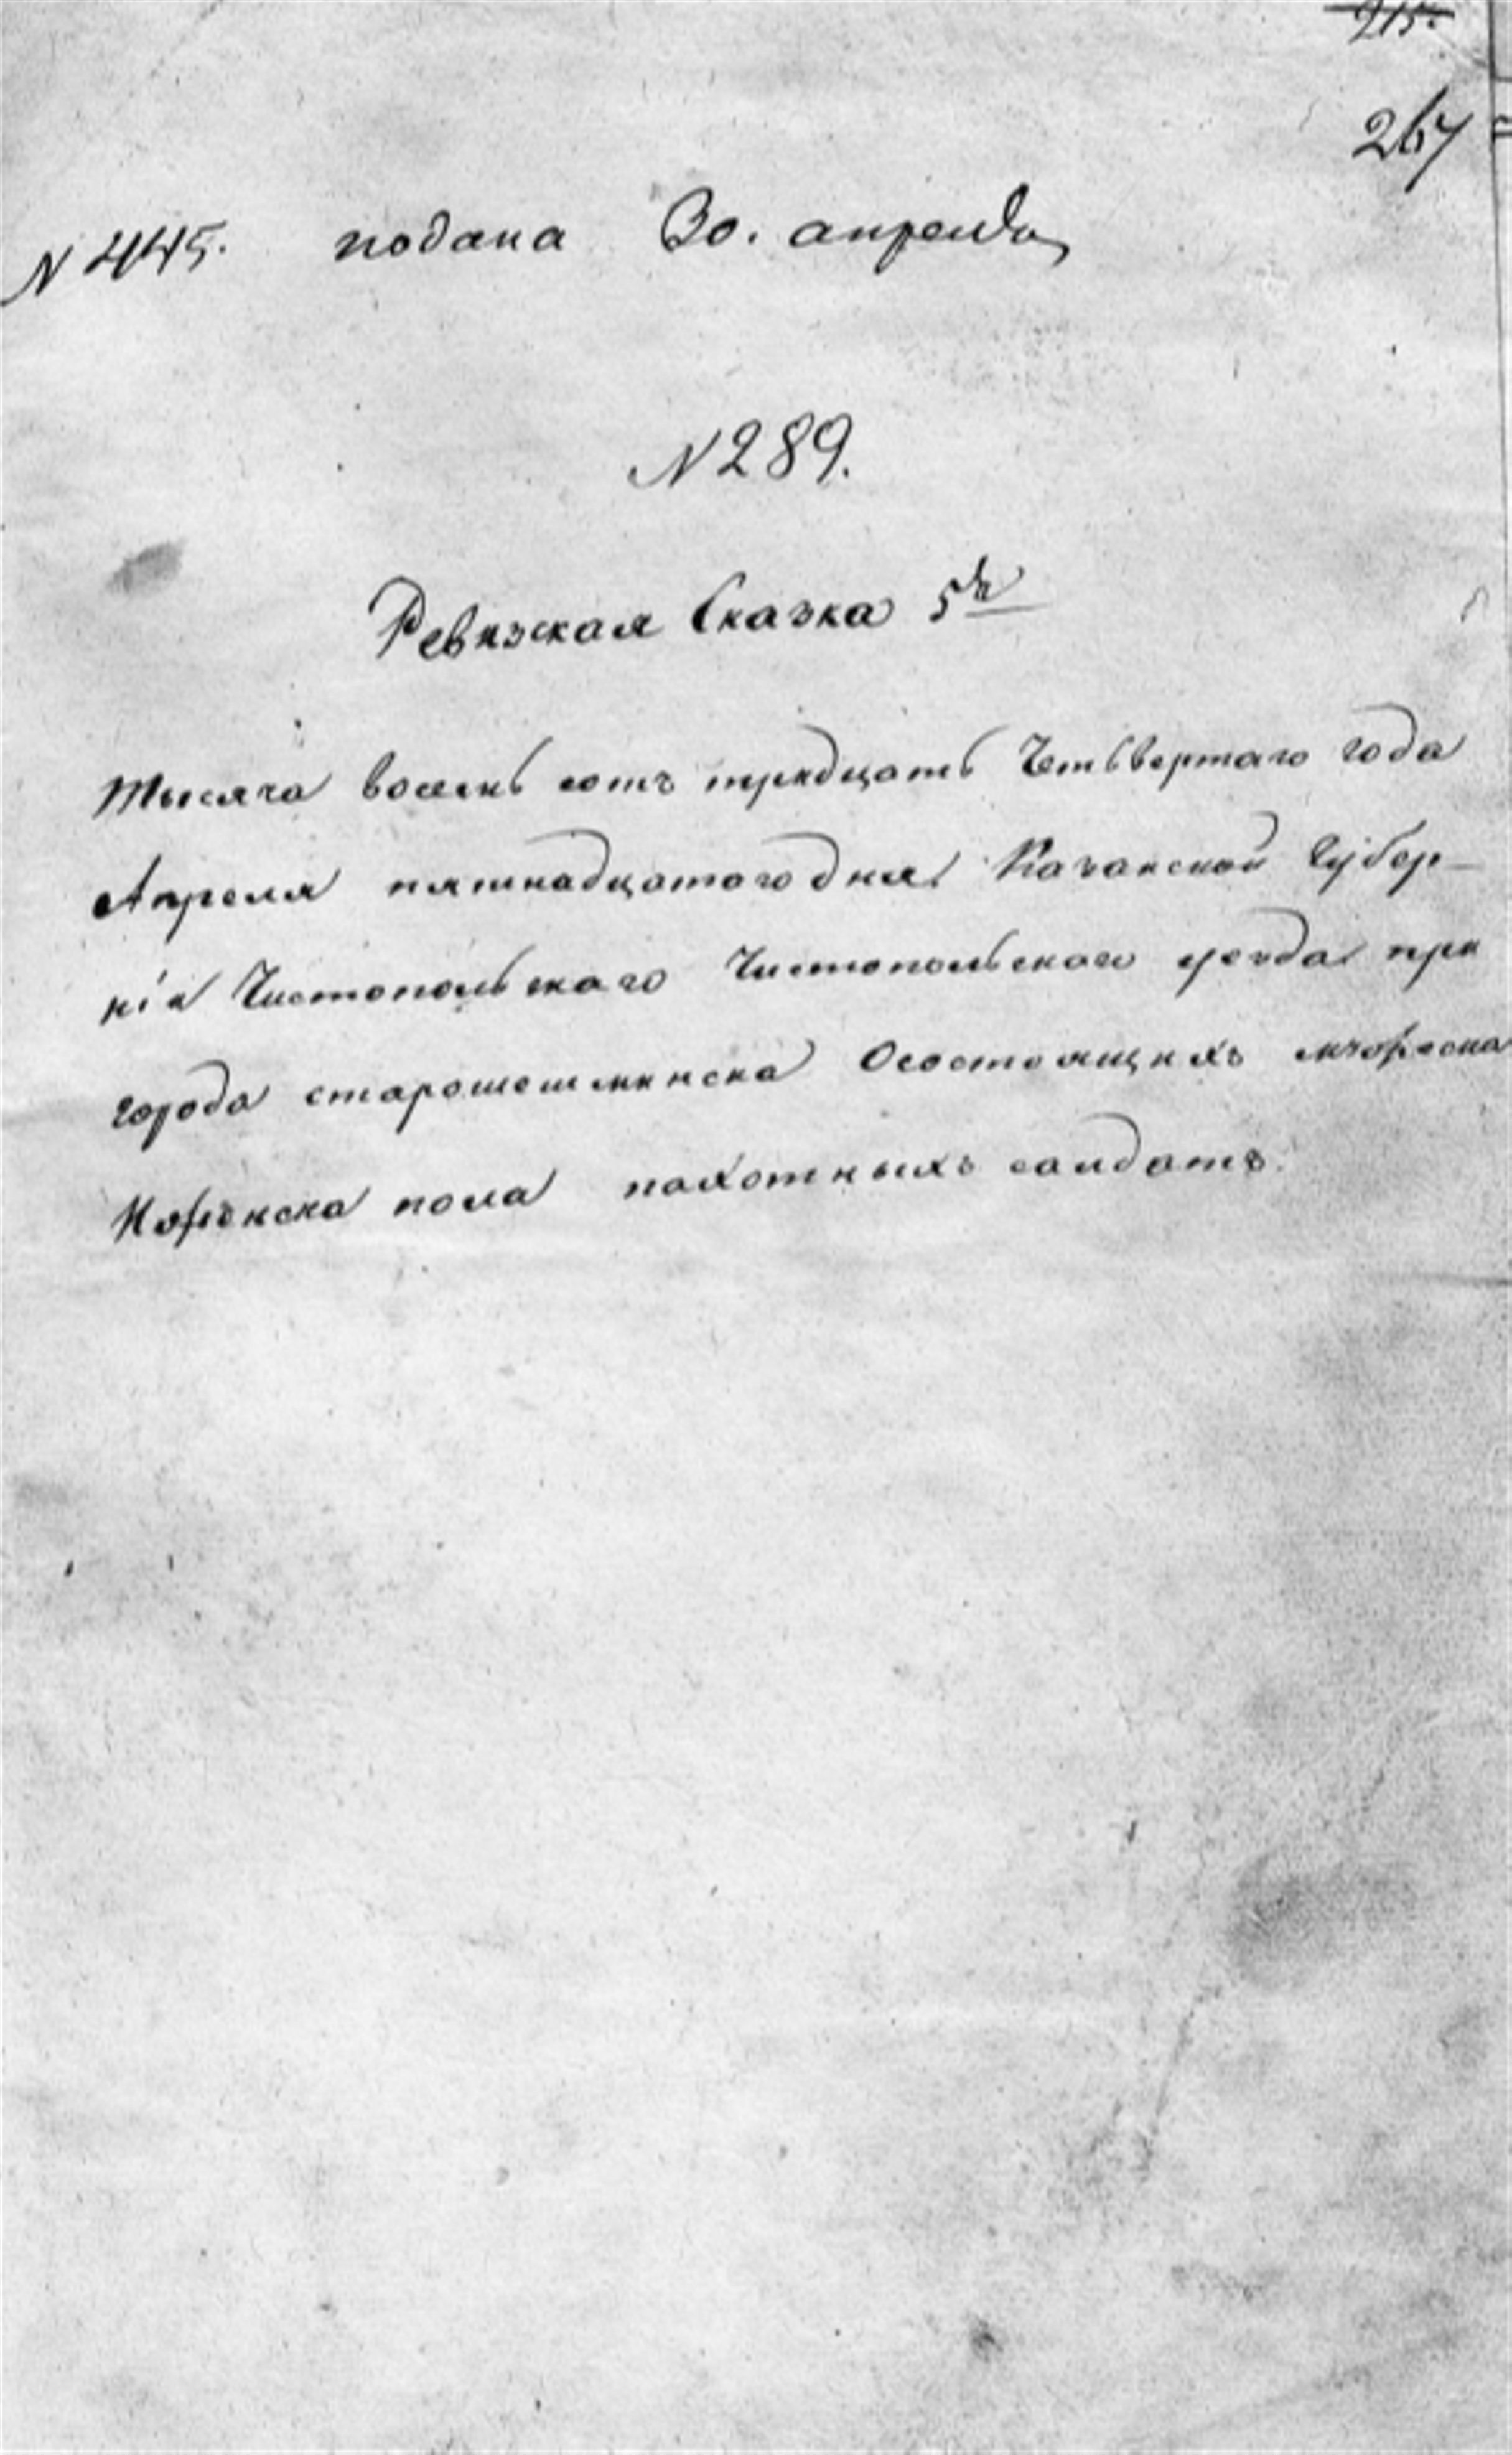 215.
267
N 445. подана 30. апреля
N 289.
Ревизская Сказка 5я
Тысяча восемь сотъ тридцать Четьвертаго года
Апреля пятнадцатого дня Казанской Губер-
ніи Чистопольскаго Чистопольскаго уезда при
города старошешминска Осостоящихъ мужеска
Иженска пола пахотныхъ салдатъ.